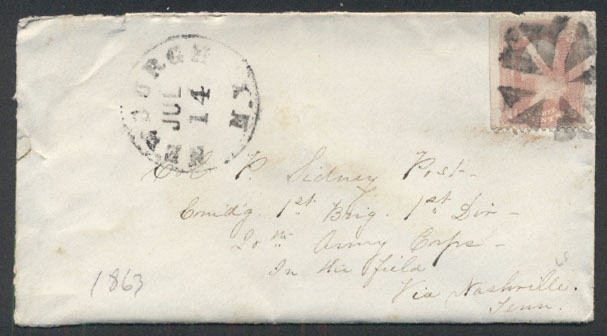 NEWBURGH N.Y.
JUL
14
Col P. Sidney Post-
Comd'g. 1st Brig. 1st Div-
20th Army Corps-
In the field
Via Nashville.
Tenn.
1863